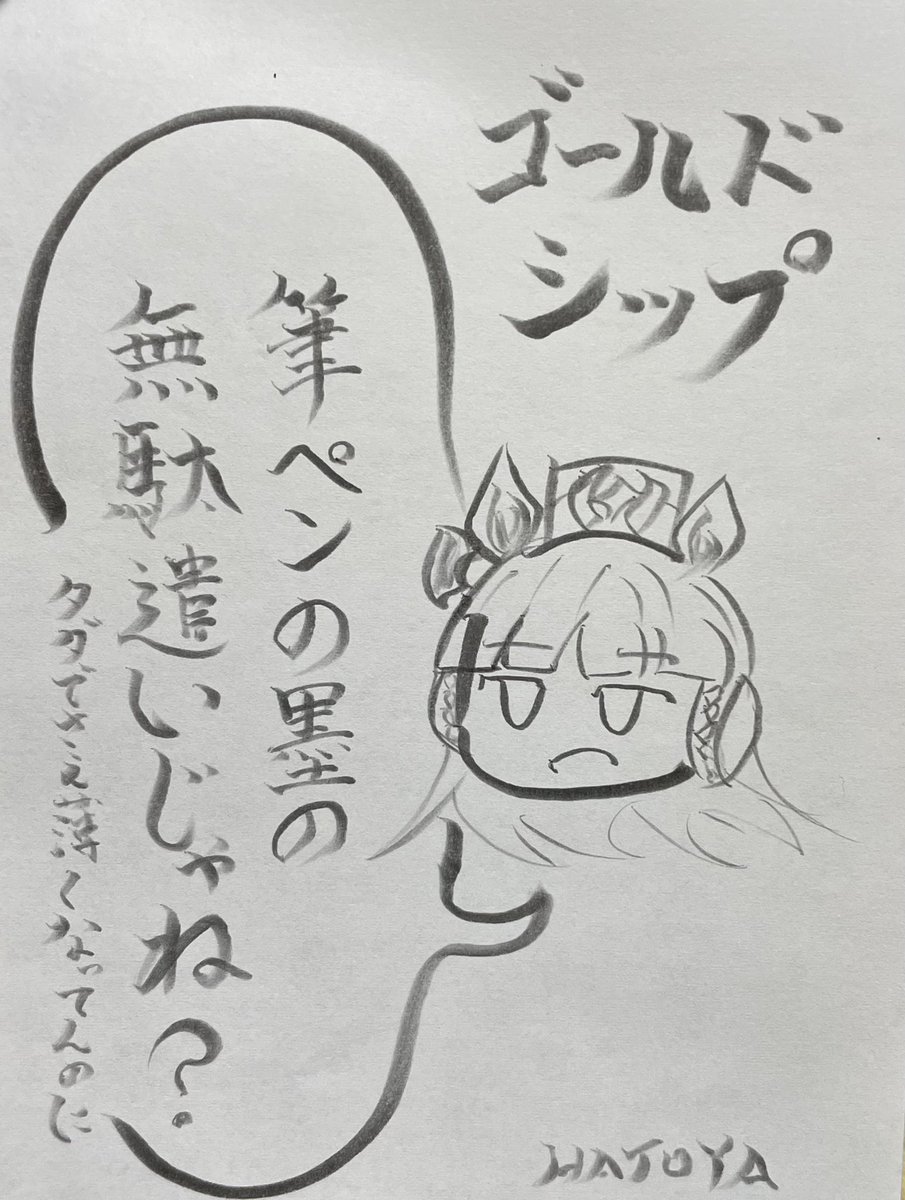 ゴールド
シップ
筆ペンの墨の
無駄遣いじゃね?
タダでさえ薄くなってんのに
HATOYA